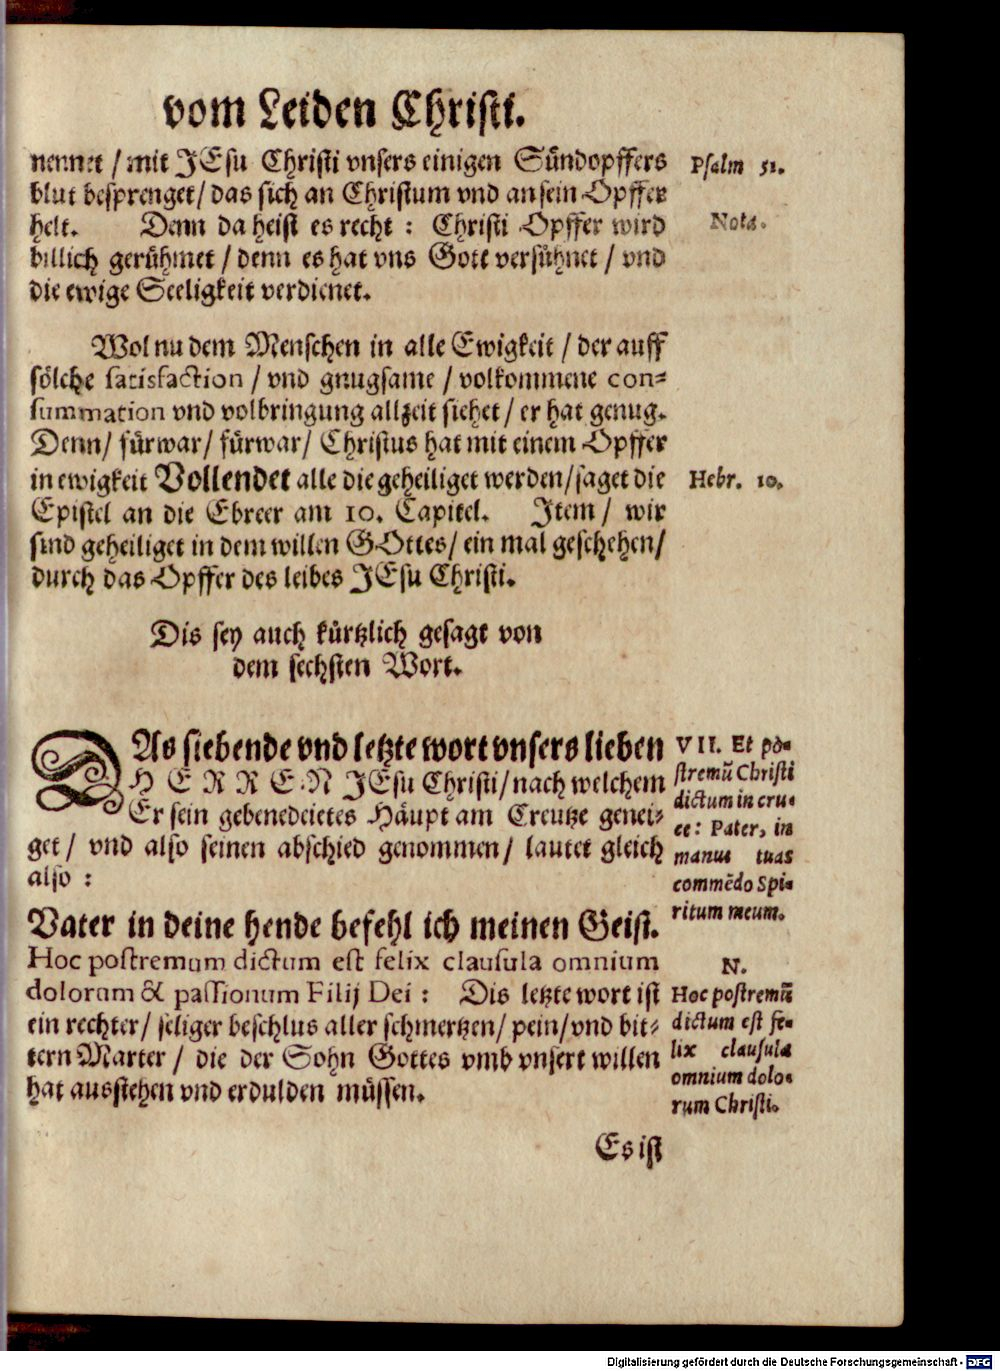 vom Leiden Christi.
nennet / mit JEsu Christi vnsers einigen Sündopffers
blut besprenget / das sich an Christum vnd an sein Opffer
helt. Denn da heist es recht : Christi Opffer wird
billich gerühmet / denn es hat vns Gott versühnet / vnd
die ewige Seeligkeit verdienet.
Psalm 51.
Nota.
Wol nu dem Menschen in alle Ewigkeit / der auff
sölche satisfaction / vnd gnugsame / volkommene con-
summation vnd volbringung allzeit siehet / er hat genug.
Denn / fürwar / fürwar / Christus hat mit einem Opffer
in ewigkeit Vollendet alle die geheiliget werden / saget die
Epistel an die Ebreer am 10. Capitel. Item / wir
sind geheiliget in dem willen GOttes / ein mal geschehen /
durch das Opffer des leibes JEsu Christi.
Hebr. 10.
Dis sey auch kürtzlich gesagt von
dem sechsten Wort.
DAs siebende vnd letzte wort vnsers lieben
HERREN JEsu Christi / nach welchem
Er sein gebenedeietes Häupt am Creutze genei-
get / vnd also seinen abschied genommen / lautet gleich
also :
VII. Et po-
stremũ Christi
dictum in cru-
ce: Pater, in
manus tuas
commẽdo Spi-
ritum meum.
Vater in deine hende befehl ich meinen Geist.
Hoc postremum dictum est felix clausula omnium
dolorum & passionum Filij Dei : Dis letzte wort ist
ein rechter / seliger beschlus aller schmertzen / pein / vnd bit-
tern Marter / die der Sohn Gottes vmb vnsert willen
hat ausstehen vnd erdulden müssen.
N.
Hoc postremũ
dictum est fe-
lix clausula
omnium dolo-
rum Christi.
Es ist
Digitalisierung gefördert durch die Deutsche Forschungsgemeinschaft - DFG